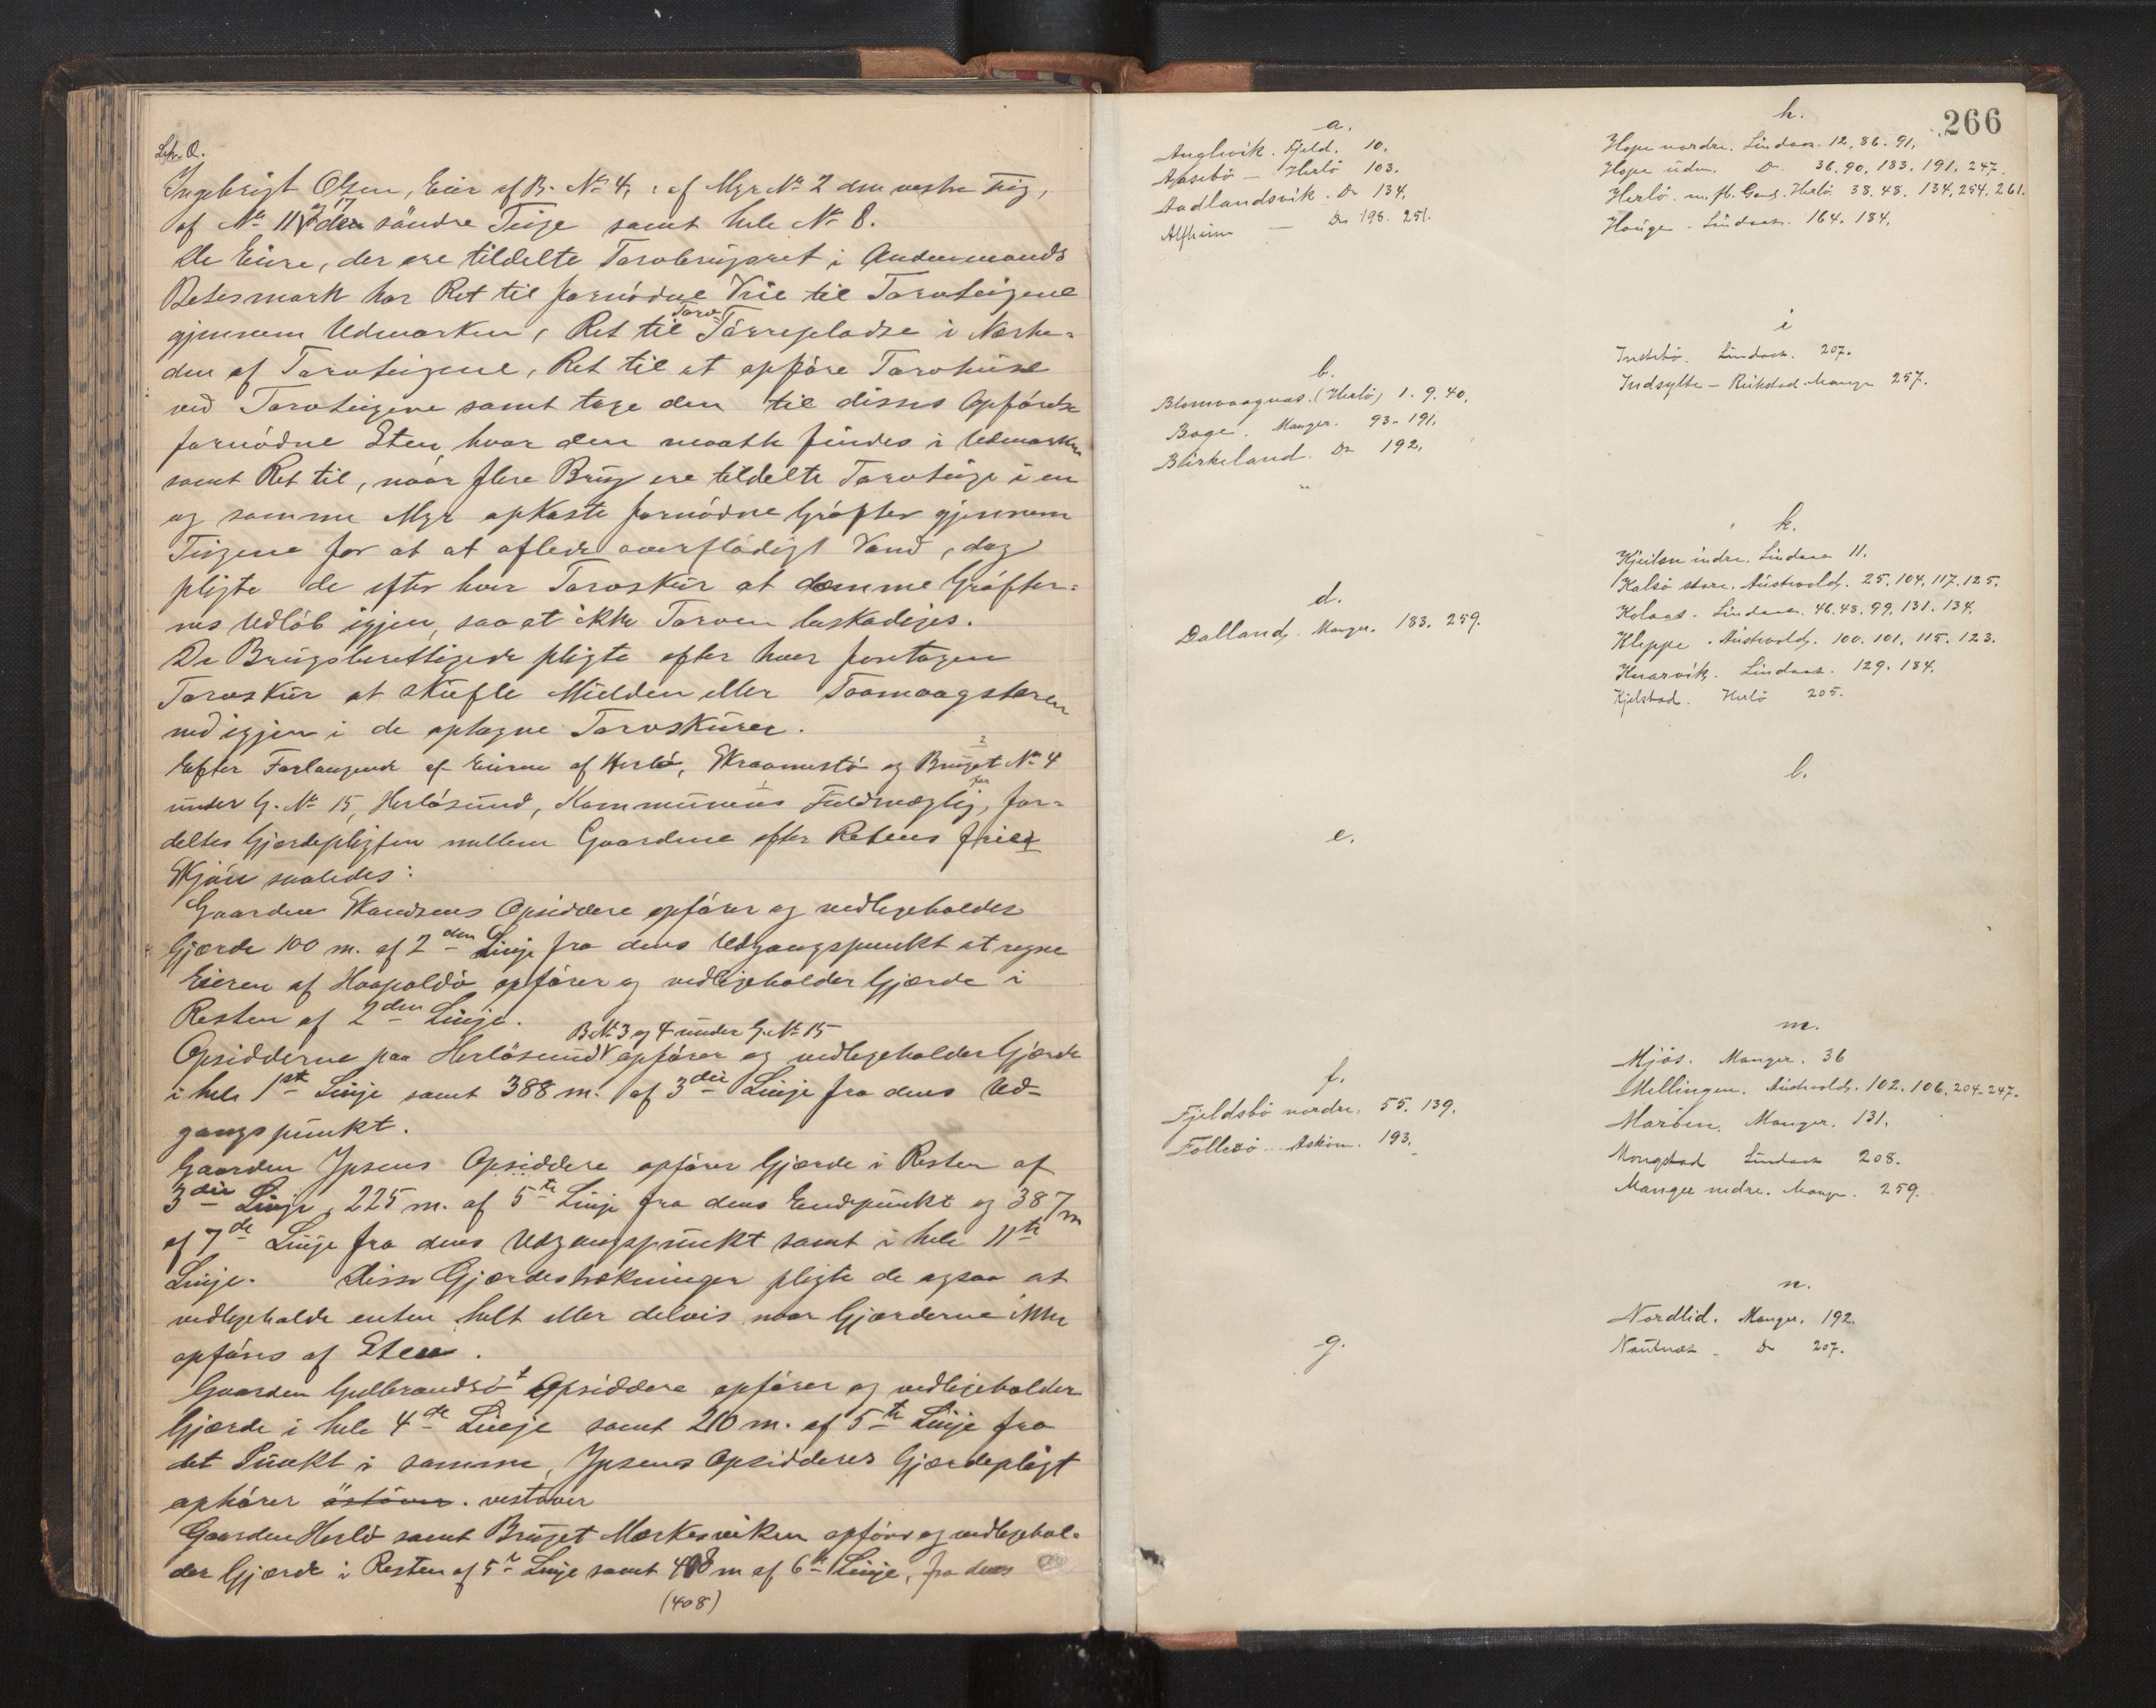 Litr. O.
Ingebrigt Olsen, Eier af B. No 4, : af Myr No 2 den vestre Teig,
af No 11 og 17 den söndre Teige samt hele No 8.
De Eiere, der ere tildelte Torvbrugsret i Andenmands
Betesmark har Ret til fornödne Veie til Torvteigene
gjennem Udmarken, Ret til Torv Törrepladse i Nærhe-
den af Torvteigene, Ret til at opföre Torvhuse
ved Torvteigene samt tage den til disses Opförelse
fornödne Sten, hvor den maatte findes i Udmarken
samt Ret til, naar flere Brug ere tildelte Torvteige i en
og samme Myr opkaste fornödne Gröfter gjennem
Teigene for at at aflede overflödigt Vand, dog
pligte de efter hver Torvskur at dæmme Gröfter-
nes Udlöb igjen, saa at ikke Torven beskadiges.
De Brugsberettigede pligte efter hver foretagen
Torvskur at skufle Mulden eller
ned igjen i de optagne Torvskurer.
Efter Forlangende af Eierne af Herlö, Skraamestö og Bruget No 4
under G. No 15, Herlösund, Kommunens Fuldmægtig, for-
deltes Gjerdepligten mellem Gaardene efter Retens frie
Skjön saaledes:
Gaarden Skandsens Opsiddere opförer og vedligeholder
Gjærde 100 m. af 2den Linje fra dens Udgangspunkt at regne
Eieren af Haapoldö opförer og vedligeholder Gjærde i
Resten af 2den Linje.
B. No 3 og 4 under G. No 15
Opsidderne paa Herlösund opförer og vedligeholder Gjærde
i hele 1ste Linje samt 388 m. af 3die Linje fra dens Ud-
gangspunkt.
Gaarden Ipsens Opsiddere opförer Gjærde i Resten af
3die Linje, 225 m. af 5te Linje fra dens Endepunkt og 387 m
af 7de Linje fra dens Udgangspunkt samt i hele 11te
Linje. Disse Gjærdestrækninger pligte de ogsaa at
vedligeholde enten helt eller delvis naar Gjærderne ikke
opföres af Sten.
Gaarden Gulbrandsö's Opsiddere opförer og vedligeholder
Gjærde i hele 4de Linje samt 210 m. af 5te Linje fra
det Punkt i samme, Ipsens Opsidderes Gjærdepligt
ophörer östover. vestover
Gaarden Herlö samt Bruget Mærkesviken opförer og vedligehol-
der Gjærde i Resten af 5te Linje samt 408 m af 6te Linje, fra dens
(408)
266
a.
Anglevik. Fjeld. 10.
Aasebö - Herlö 103.
Aadlandsvik. Do 134.
Alfheim - Do 198. 251.
b.
Blomvaagnæs. (Herlö) 1. 9. 40.
Boge. Manger. 93 - 191.
Birkeland. Do 192.
d.
Dalland. Manger. 183. 259.
e.
f.
Fjeldsbö nordre. 55. 139.
Föllesö - Asköen. 193.
g.
h.
Hope nordre. Lindaas. 12. 86. 91.
Hope uden. Do. 36. 90. 183. 191. 247.
Herlö. m. fl. Gaard. Herlö. 38. 48. 134. 254. 261.
Hauge - Lindaas. 164. 184.
i
Instebö. Lindaas. 207.
Indsylte - Rikstad Manger 257.
k.
Kjeilen indre. Lindaas 11.
Kalsö store. Austrvold. 25. 104. 117. 125.
Kolaas - Lindaas. 46. 48. 99. 131. 134.
Kleppe. Austrvold. 100. 101. 115. 123.
Knarvik. Lindaas. 129. 184.
Kjelstad. Herlö 205.
l.
m.
Mjös. Manger. 36
Mellingen. Austrvold. 102. 106. 204 - 247.
Maröen. Manger. 131.
Mongstad Lindaas 208.
Manger nedre. Manger. 259.
n.
Nordlid. Manger. 192.
Nautnæs - Do 207.